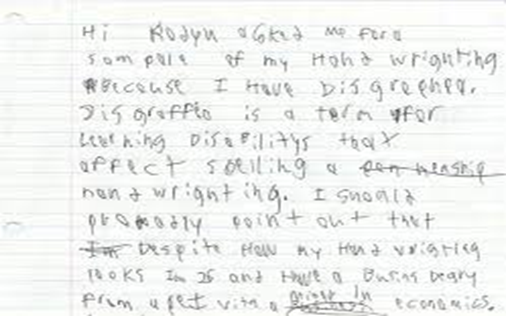 Hi Robyn asked me for a
sample of my Hand wrighting
Because I Have Disgraphea.
Disgraffia is a term for
Learning Disabilitys that
affect spelling a
hand wrighting. I should
probably point out that
Despite How my Hand wrigting
looks Im 25 and Have a
from a a economics.